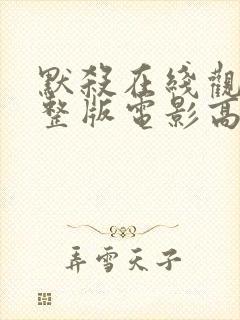 默殺在綫觀
整版電影高
弄雪天子